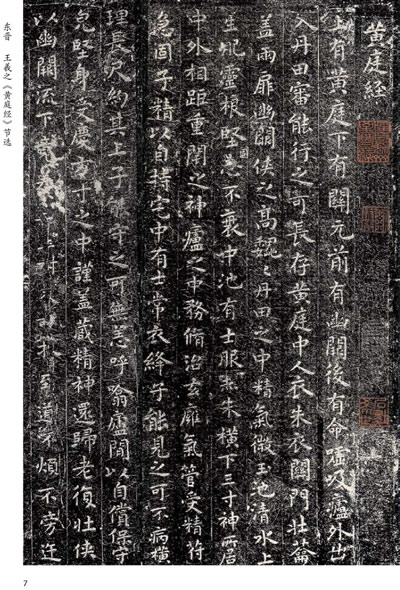 黃庭經
上有黃庭下有關元前有幽闕後有命噓吸廬外出
入丹田審能行之可長存黃庭中人衣朱衣關門壯蘥
蓋兩扉幽闕俠之高魏〻丹田之中精氣微玉池清水上
生肥靈根堅志不衰中池有士服赤朱橫下三寸神所居
中外相距重閉之神廬之中務脩治玄癰氣管受精符
急固子精以自持宅中有士常衣絳子能見之可不病橫
理長尺約其上子能守之可無恙呼翕廬間以自償保守
完堅身受慶方寸之中謹蓋藏精神還歸老復壯俠
以幽闕流下竟樹不杖至道不煩不旁迕
东晋 王羲之《黄庭经》节选
7